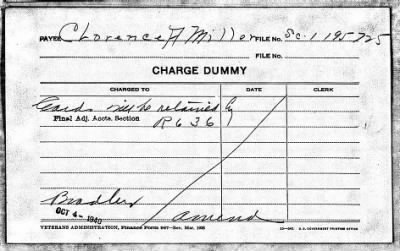 PAYEE Clarence A Miller FILE NO. Sc. 1 195 725
FILE NO.
CHARGE DUMMY
CHARGED TO DATE CLERK
Cards will be retained by
Final Adj. Accts. Section R636
Bradley
OCT 4 - 1940
Amend
VETERANS ADMINISTRATION, Finance Form
U.S. GOVERNMENT PRINTING OFFICE